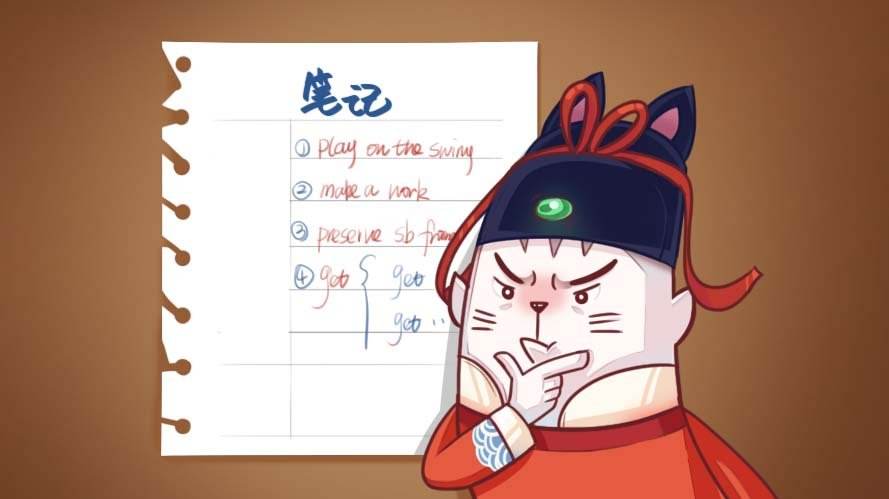 笔记
① play on the swing
② make a work
③ preserve sb from
④ get { get
get ..